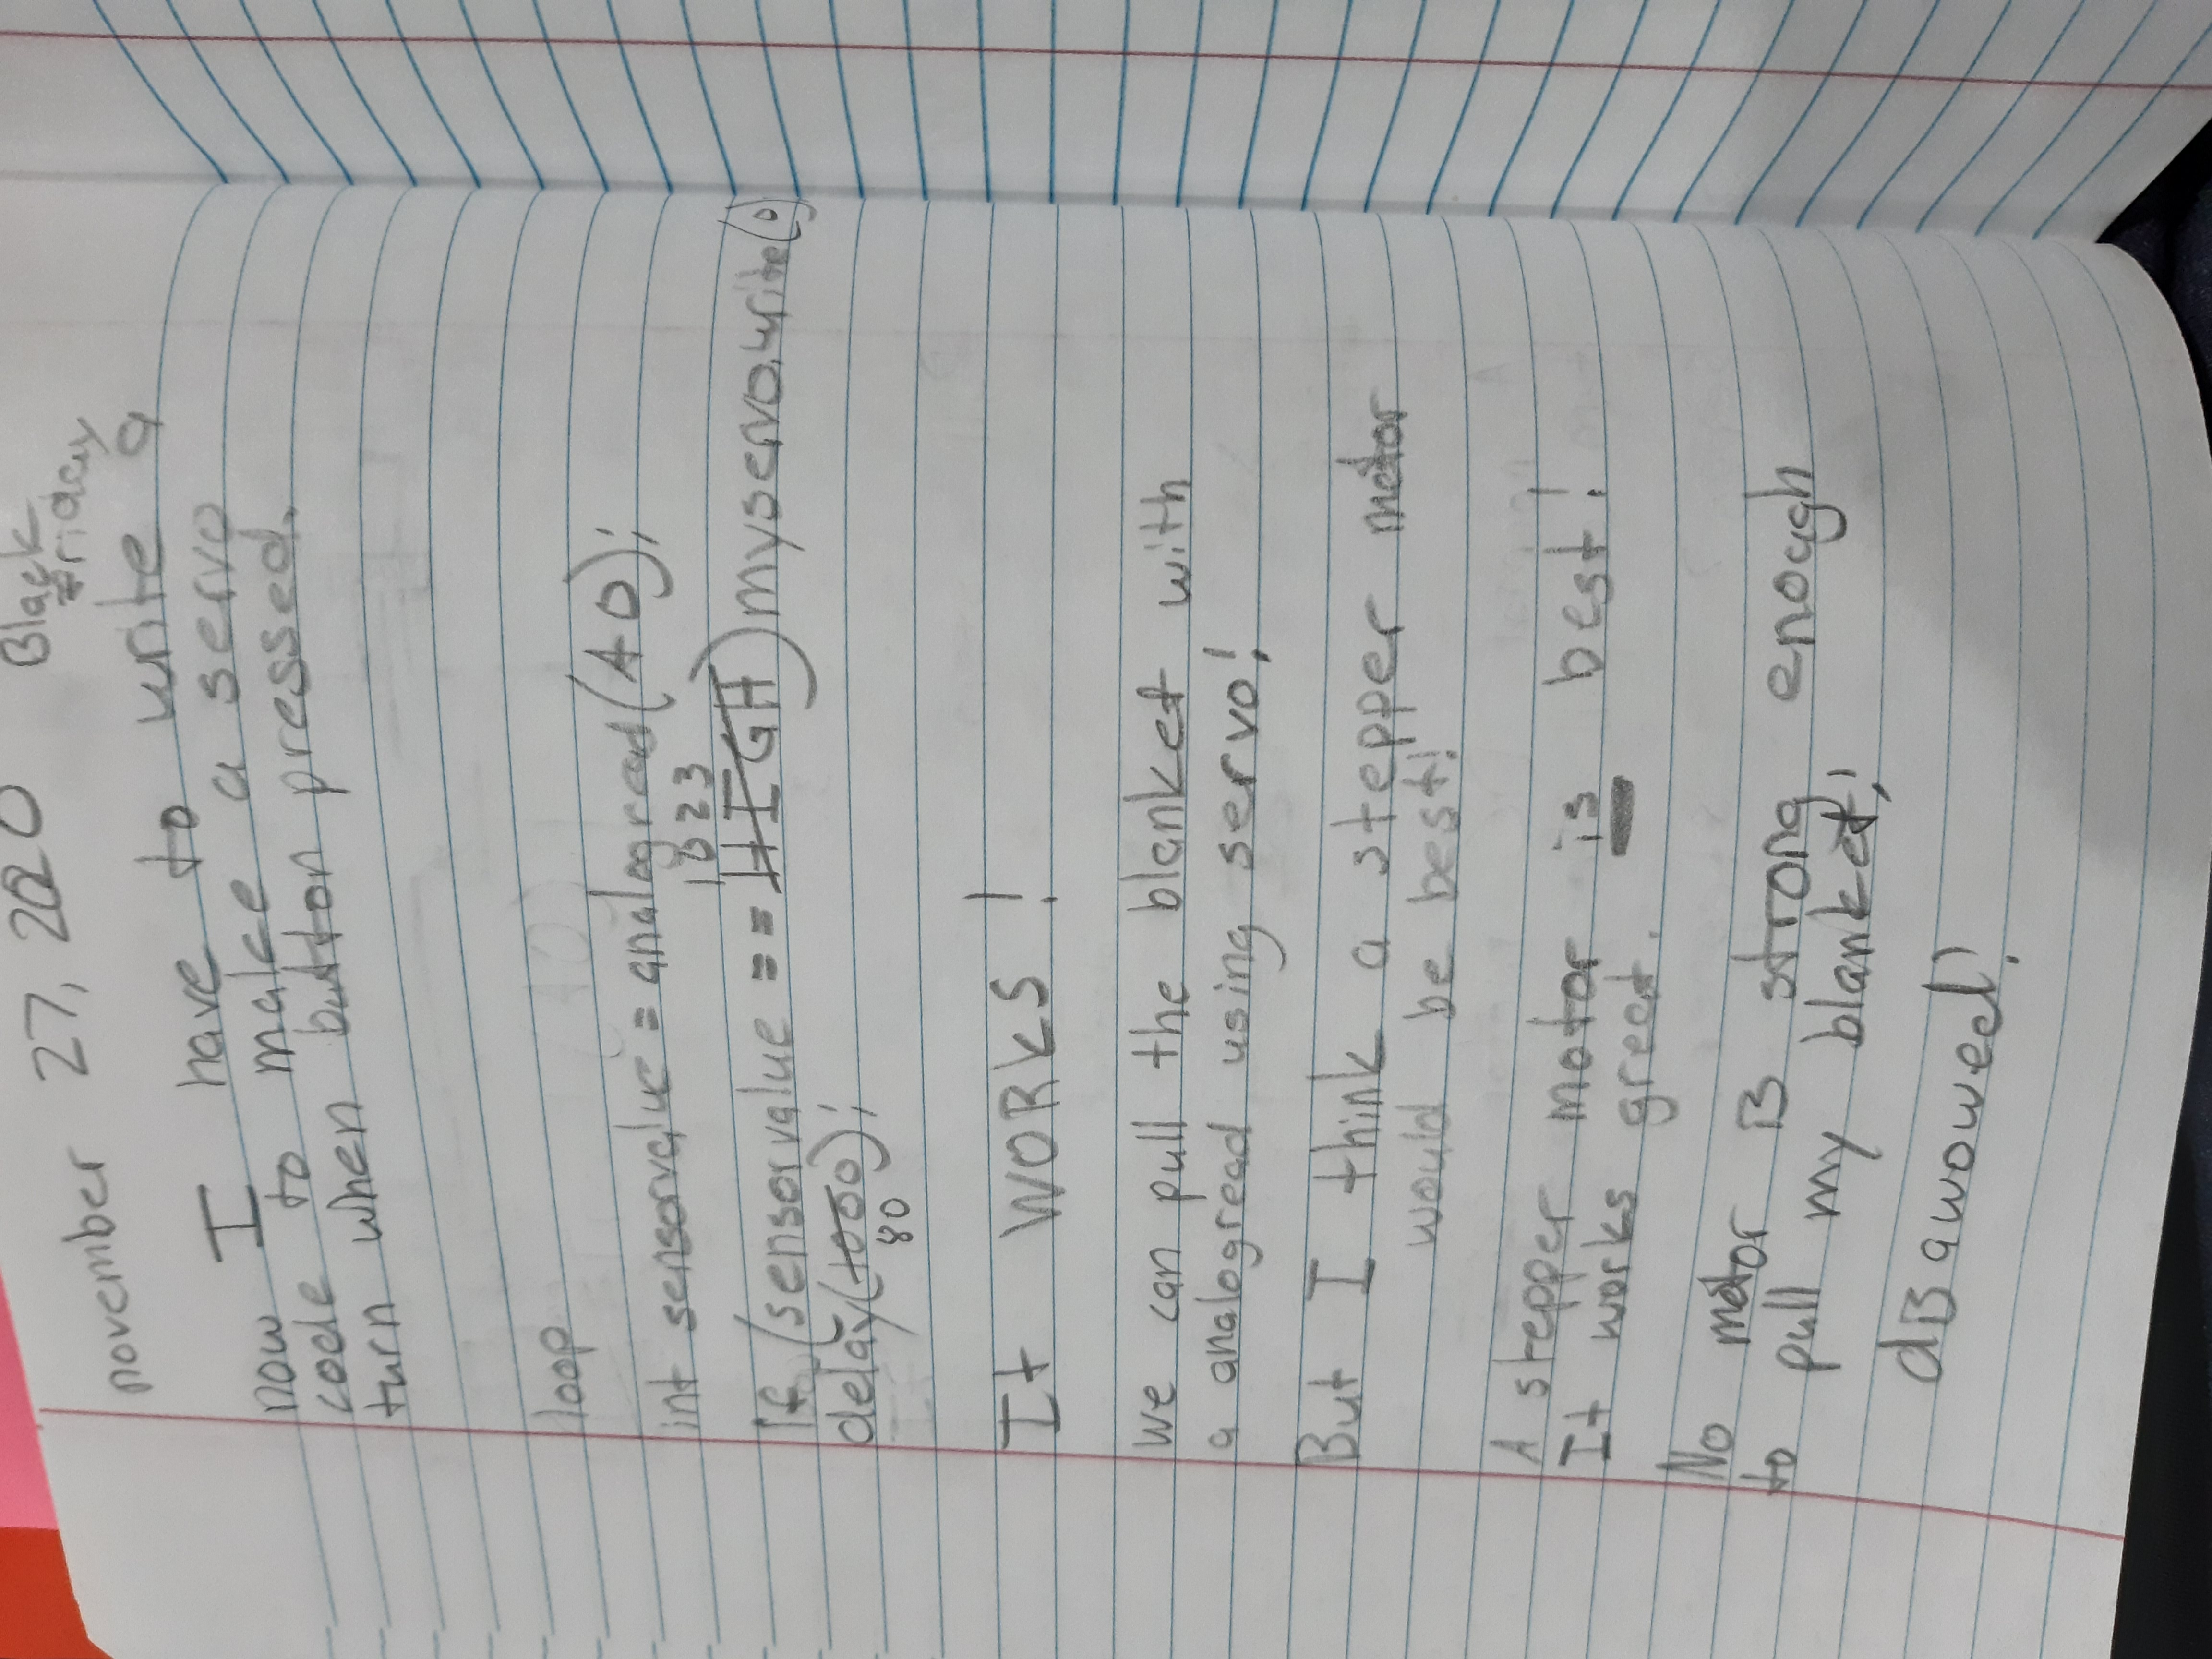 november 27, 2020 Black
Friday
I have to write a
now to make a servo
code to button pressed.
turn when
loop
int sensorvalue = analogread(A0);
1023
If (sensorvalue == HIGH) myservo.write(0)
delay(1000);
80
It WORKS!
we can pull the blanket with
a analogread using servo!
But I think a stepper motor
would be best!
A stepper motor is best!
It works great.
No motor is strong enough
to pull my blanket!
disavowed!